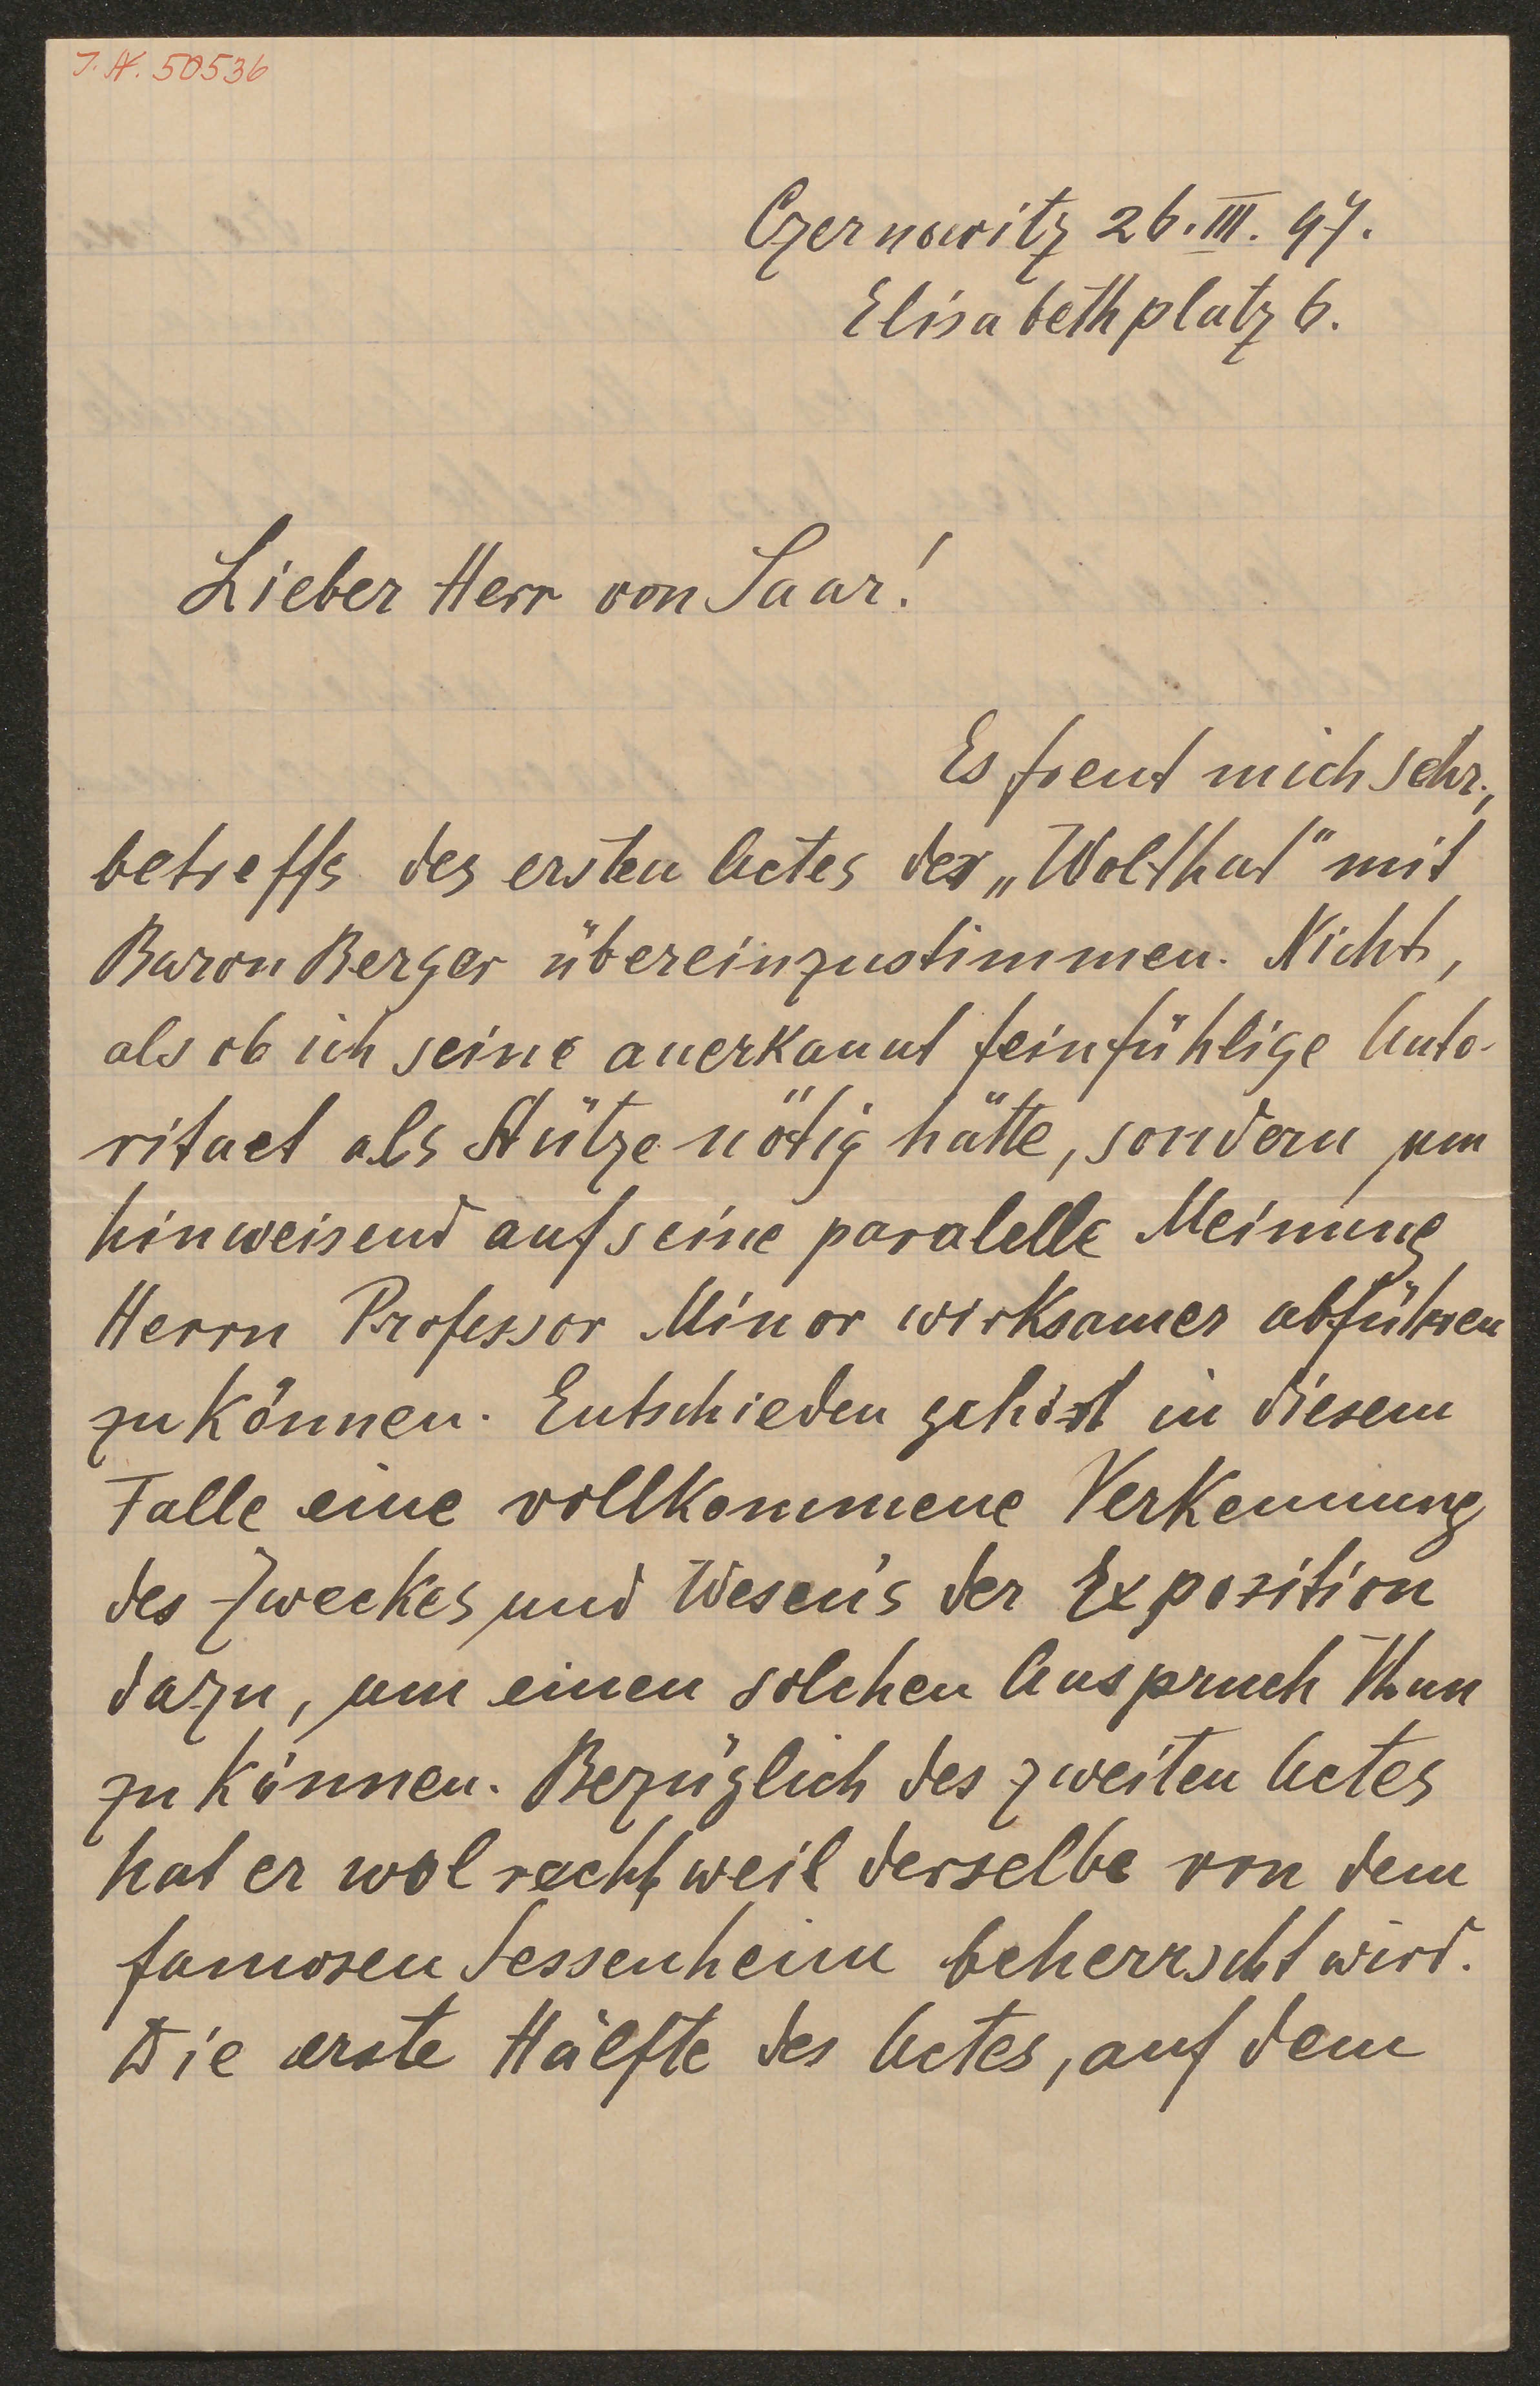 J. N. 50536
Czernowitz 26. III. 97.
Elisabethplatz 6.
Lieber Herr von Saar!
Es freut mich sehr,
betreffs des ersten Actes der „Wolthat" mit
Baron Berger übereinzustimmen. Nicht,
als ob ich seine anerkannt feinfühlige Auto-
ritaet als Stütze nötig hätte, sondern um
hinweisend auf seine paralelle Meinung
Herrn Professor Minor wirksamer abführen
zu können. Entschieden gehört in diesem
Falle eine vollkommene Verkennung
des Zweckes und Wesen's der Exposition
dazu, um einen solchen Auspruch thun
zu können. Bezüglich des zweiten Actes
hat er wol recht, weil derselbe von dem
famosen Sessenheim beherrscht wird.
Die erste Hälfte des Actes, auf dem